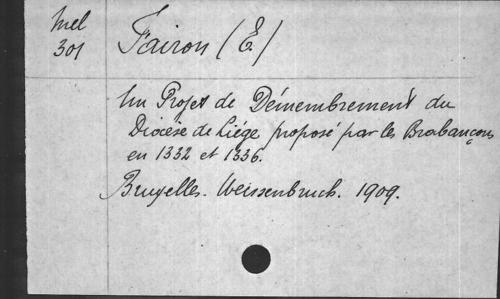 Mel
301
Fairon (E)
Un Projet de Démembrement du
Diocèse de Liége proposé par les Brabançons
en 1332 et 1336.
Bruxelles. Weissenbruch. 1909.